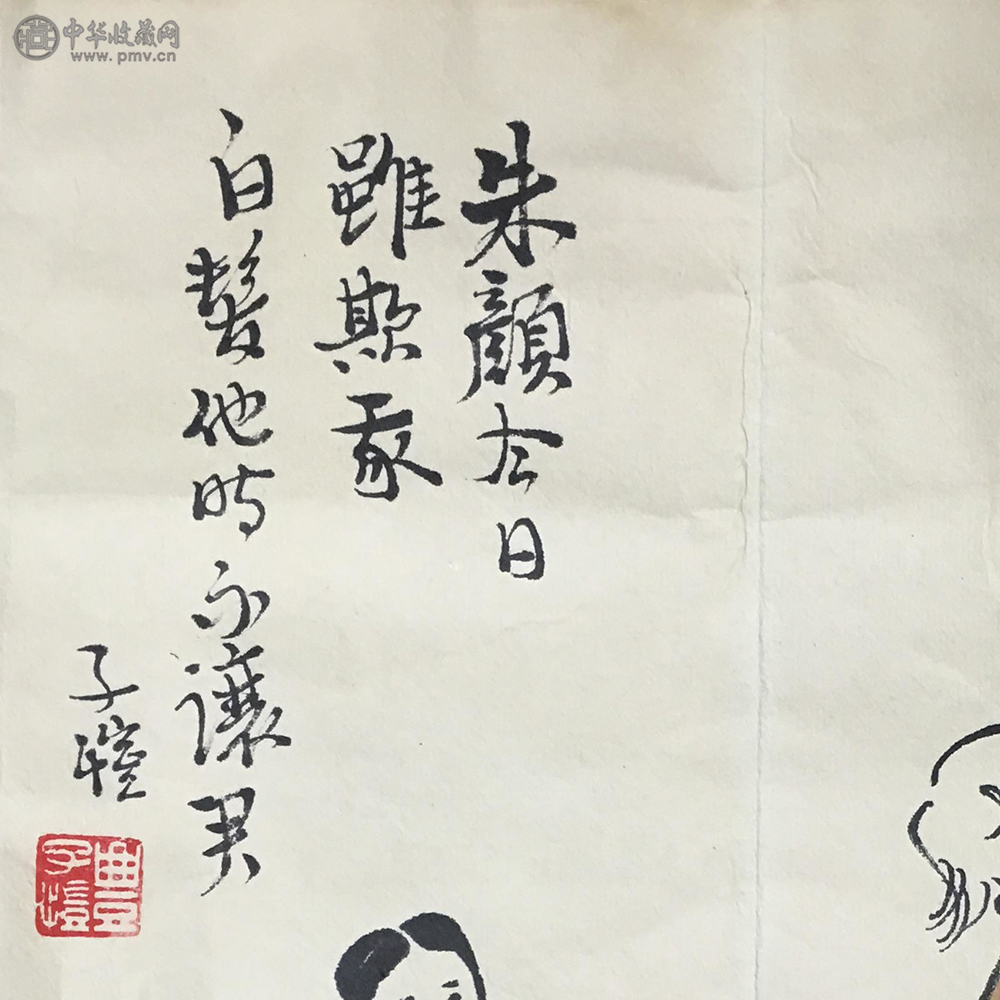 中华收藏网
www.pmv.cn
朱顔今日
雖欺我
白髮他時不讓君
子愷
豐子愷